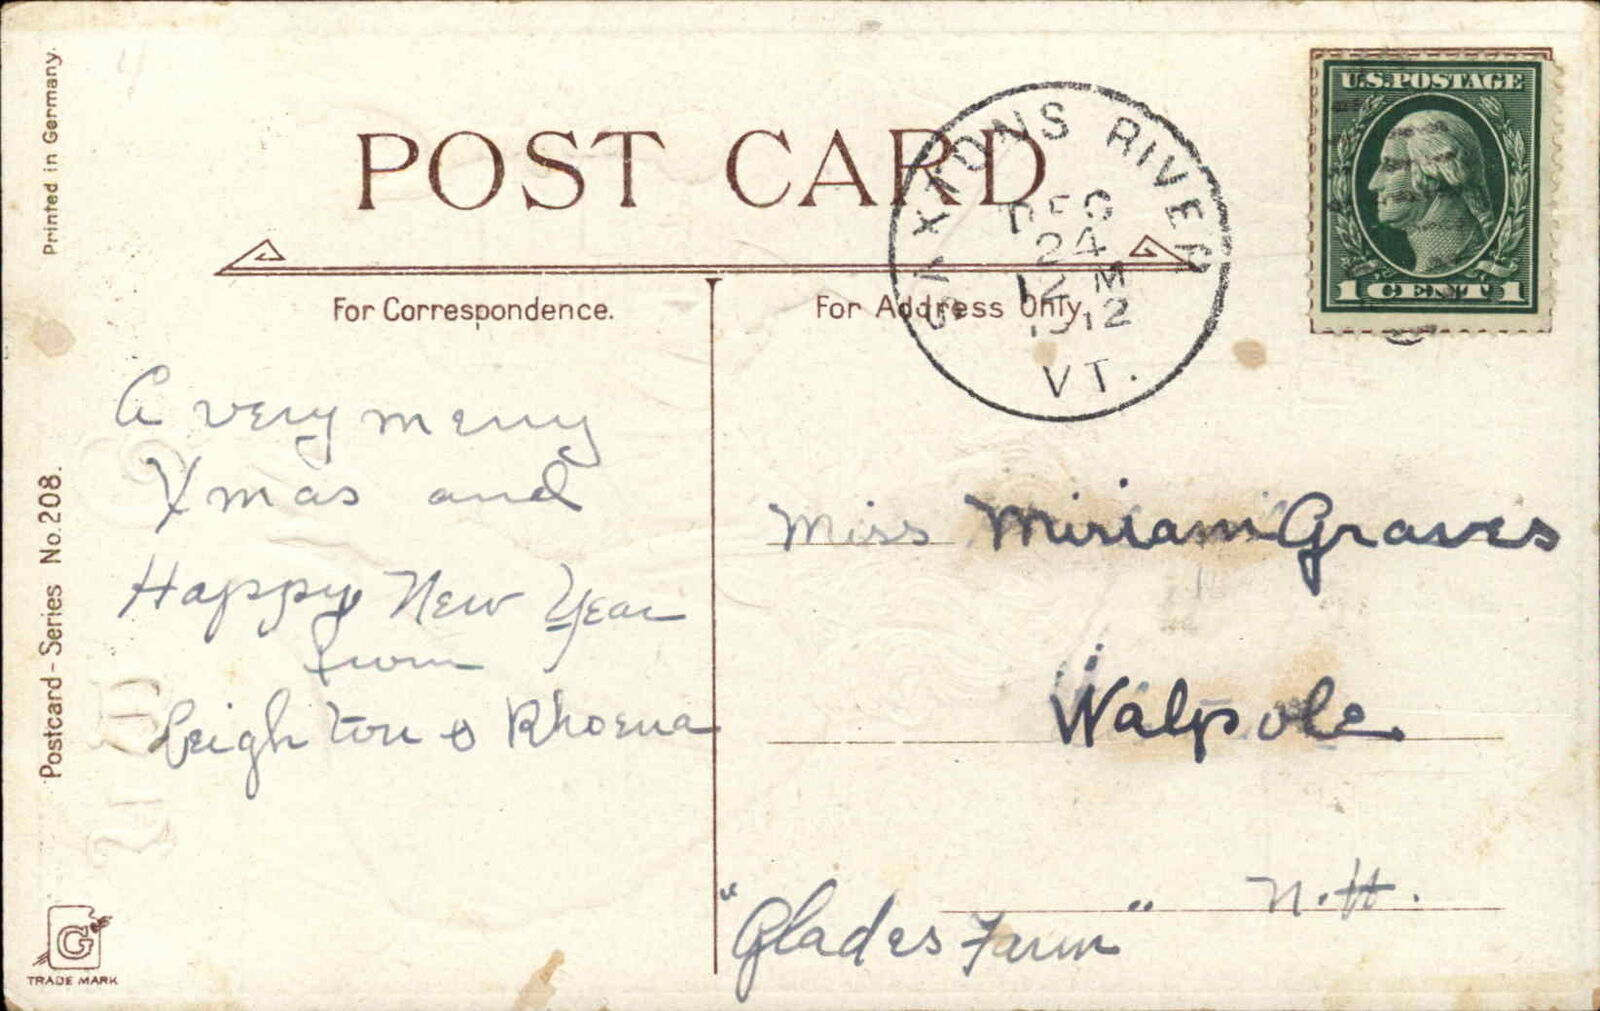 Printed in Germany.
POST CARD
SAXTONS RIVER
DEC
24
12 M
1912
VT.
U.S. POSTAGE
1 CENT 1
For Correspondence.
For Address Only.
A very merry
Xmas and
Happy New Year
from
Leighton & Rhoena
Miss Miriam Graves
Walpole
N.H.
"Glades Farm"
Postcard-Series No. 208.
G
TRADE MARK